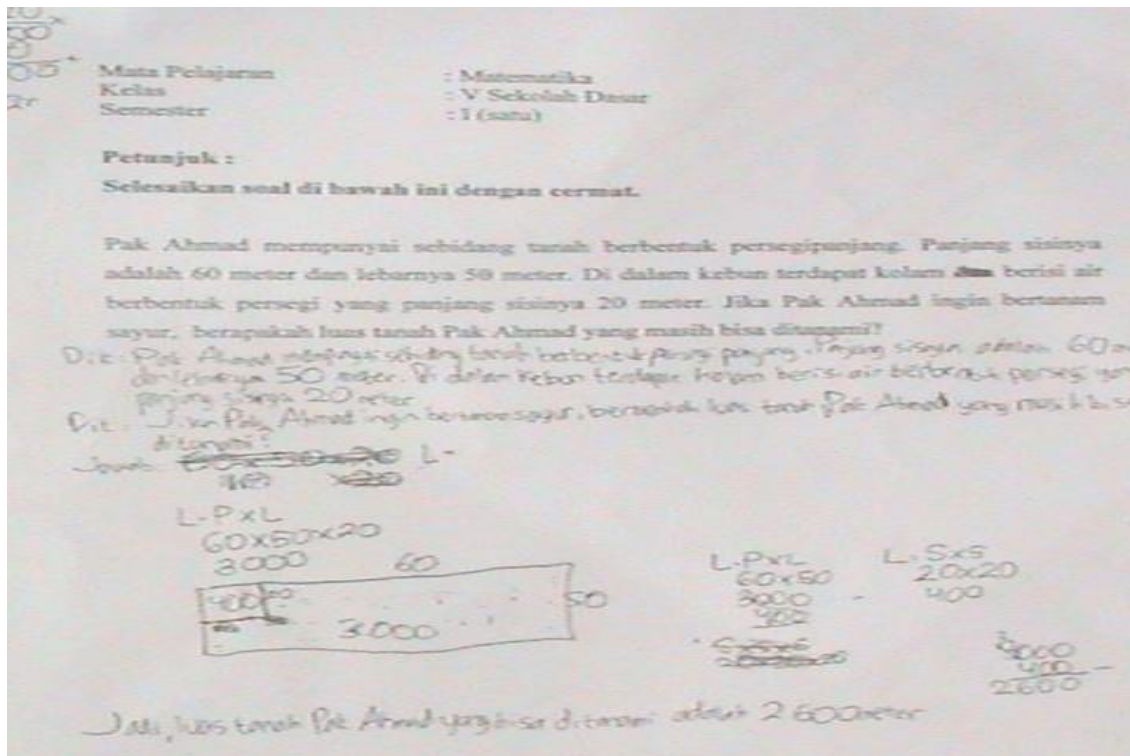 Mata Pelajaran : Matematika
Kelas : V Sekolah Dasar
Semester : I (satu)
Petunjuk :
Selesaikan soal di bawah ini dengan cermat.
Pak Ahmad mempunyai sebidang tanah berbentuk persegipanjang. Panjang sisinya
adalah 60 meter dan lebarnya 50 meter. Di dalam kebun terdapat kolam berisi air
berbentuk persegi yang panjang sisinya 20 meter. Jika Pak Ahmad ingin bertanam
sayur, berapakah luas tanah Pak Ahmad yang masih bisa ditanami?
Dit : Pak Ahmad mempunyai sebidang tanah berbentuk persegi panjang. Panjang sisinya adalah 60 m
dan lebarnya 50 meter. Di dalam kebun terdapat kolam berisi air berbentuk persegi yang
panjang sisinya 20 meter
Dit : Jika Pak Ahmad ingin bertanam sayur, berapakah luas tanah Pak Ahmad yang masih bisa
ditanami?
Jawab L-
L-PxL
60x50x20
3000
60
400
50
3000
L-PxL
60x50
3000 -
400
L-SxS
20x20
400
400 -
2600
Jadi, luas tanah Pak Ahmad yang bisa ditanami adalah 2600 meter